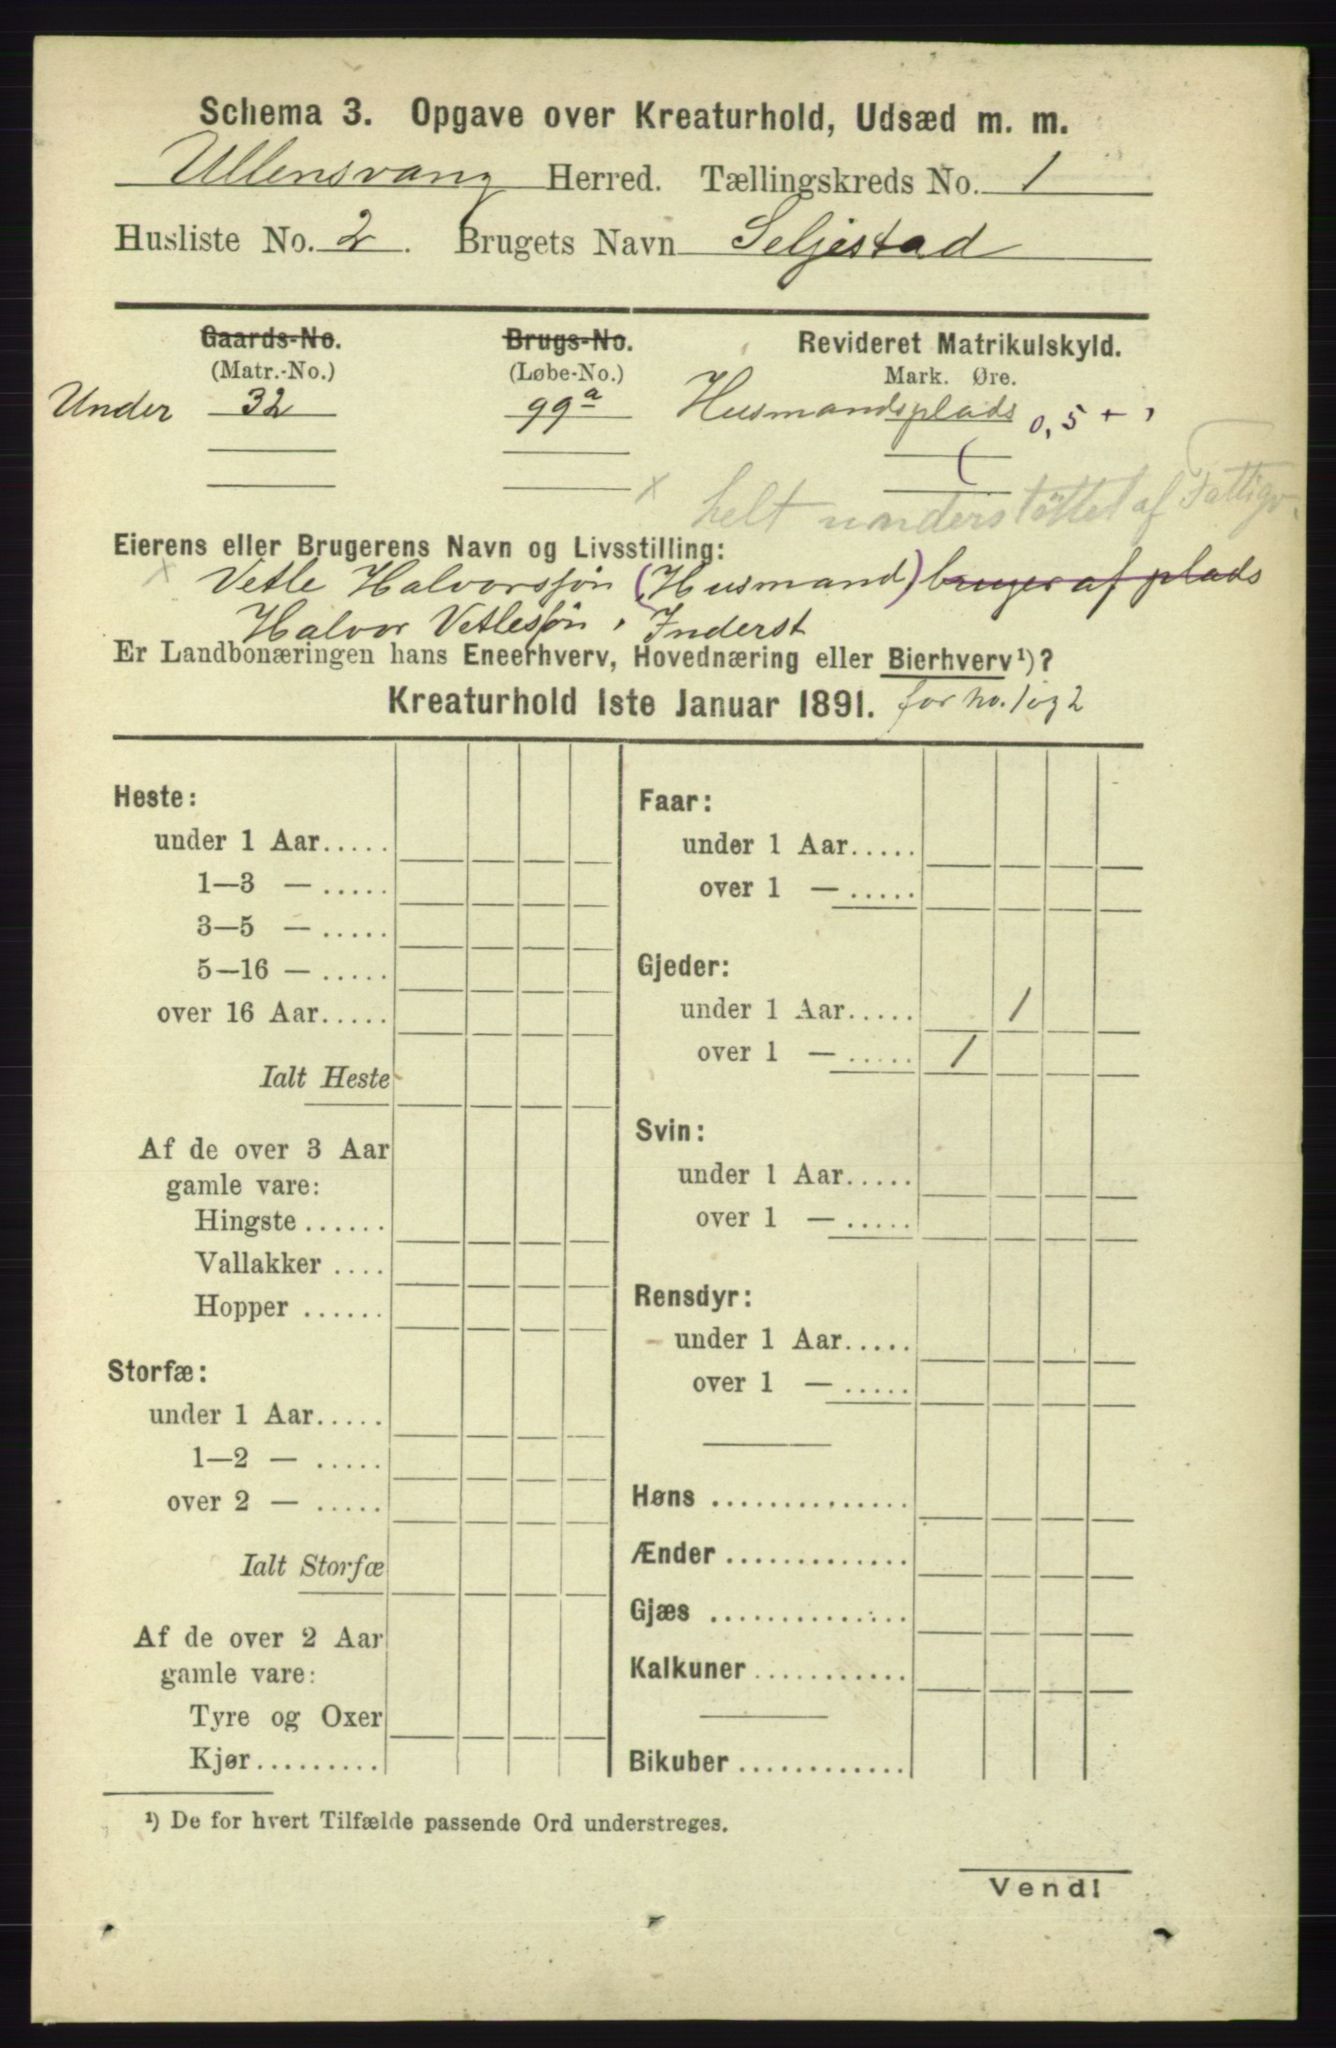 Schema 3. Opgave over Kreaturhold, Udsæd m. m.
Ullensvang Herred. Tællingskreds No. 1
Husliste No. 2. Brugets Navn Seljestad
Gaards-No. Brugs-No. Revideret Matrikulskyld.
(Matr.-No.) (Løbe-No.) Mark. Øre.
Under 32 99a Husmandsplads 0,5 +
x helt understöttet af Fattigv.
Eierens eller Brugerens Navn og Livsstilling:
x Vetle Halvorssøn (Husmand) bruger af plads
Halvor Vetlesøn, Inderst
Er Landbonæringen hans Eneerhverv, Hovednæring eller Bierhverv¹)?
Kreaturhold 1ste Januar 1891. for no. 1 og 2
Heste:
under 1 Aar.....
1—3 — .....
3—5 — .....
5—16 — .....
over 16 Aar.....
Ialt Heste
Af de over 3 Aar
gamle vare:
Hingste ......
Vallakker ....
Hopper ......
Storfæ:
under 1 Aar.....
1—2 — .....
over 2 — .....
Ialt Storfæ
Af de over 2 Aar
gamle vare:
Tyre og Oxer
Kjør.........
Faar:
under 1 Aar.....
over 1 — .....
Gjeder:
under 1 Aar..... 1
over 1 — ..... 1
Svin:
under 1 Aar.....
over 1 — .....
Rensdyr:
under 1 Aar.....
over 1 — .....
Høns ..............
Ænder .............
Gjæs ..............
Kalkuner...........
Bikuber ............
¹) De for hvert Tilfælde passende Ord understreges.
Vend!